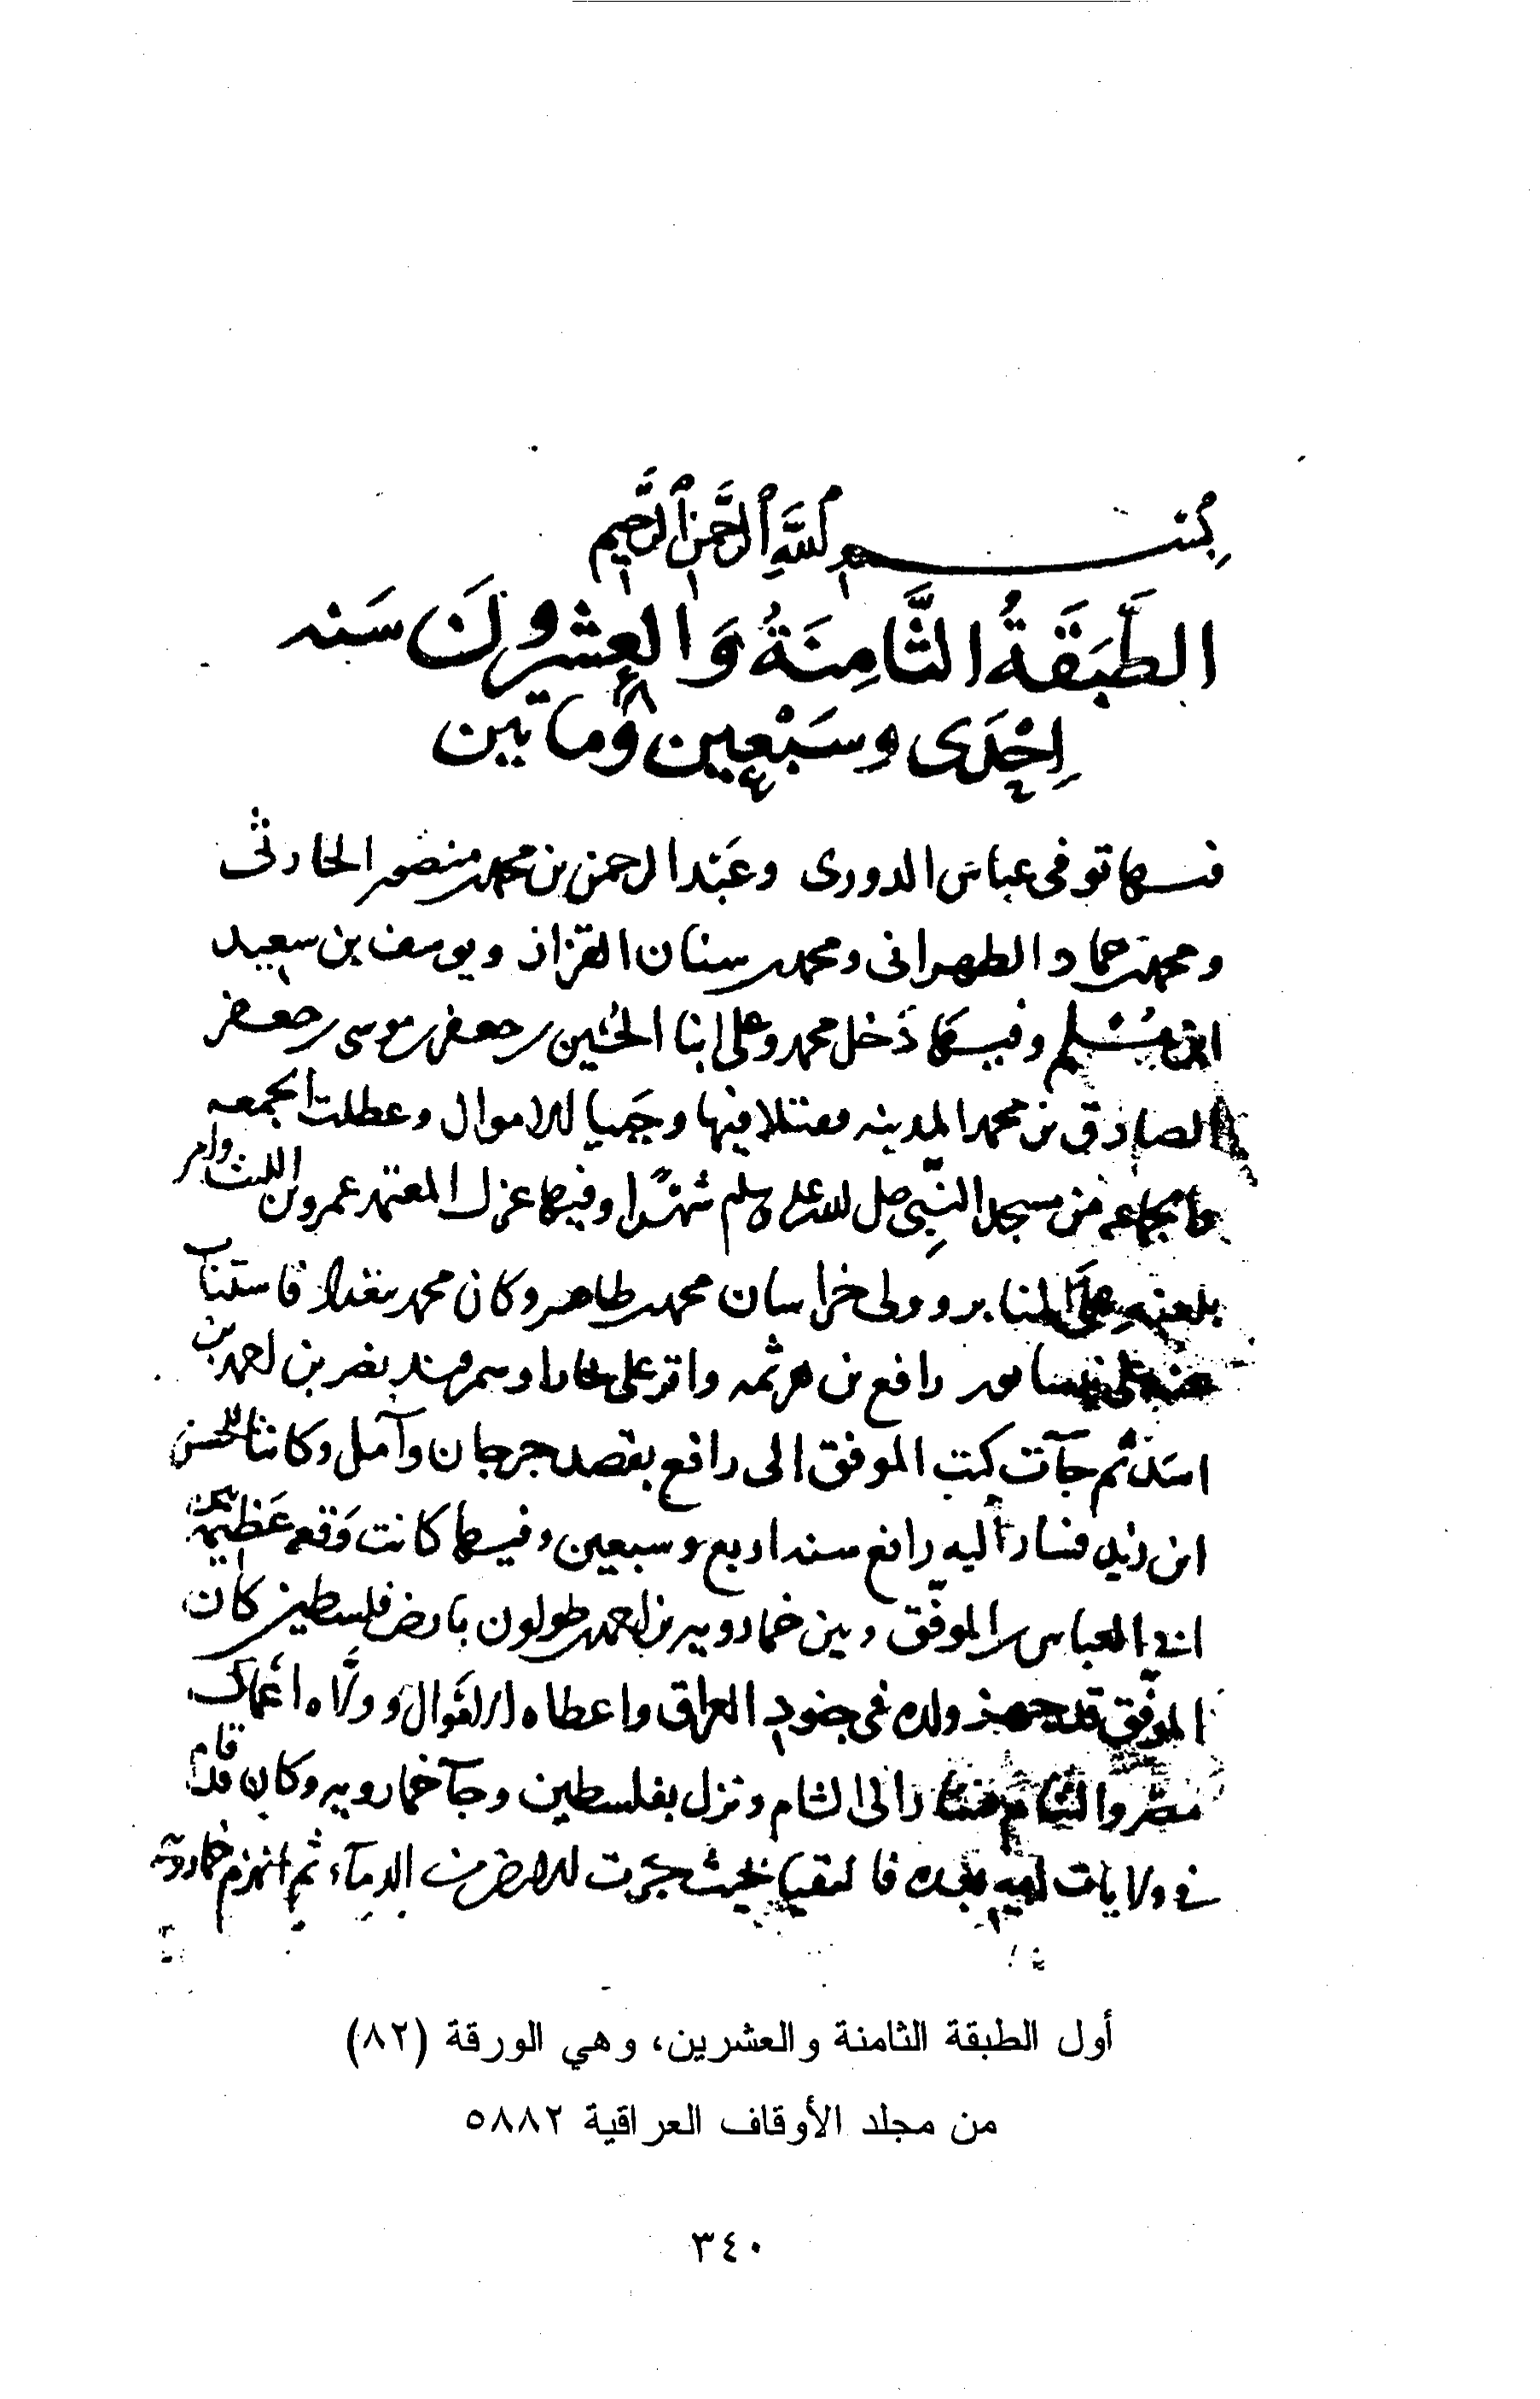 بسم الله الرحمن الرحيم
الطَّبَقَةُ الثَّامِنَةُ وَالعِشرونَ سَنه
اِحْدَى وسَبْعِين وماتين
فيها توفى عباس الدورى وعَبْد الرحمن بن محمد بن منصور الحارثى
ومحمد بن حماد الطهرانى ومحمد بن سنان القزاز ويوسف بن سعيد
ابن مُسْلم وفيها دَخل محمد وعلى ابنا الحُسَين بن جعفر بن موسى بن جعفر
الصادق بن محمد المدينه فقتلا فيها وجَبيا الاموال وعطلت الجمعه
والجماعه من مسجد النَّبِى صلى الله عليه وسلم شهْرًا وفيها عزل المعتمد عمرو بن الليث وامر
بلعنه على المنابر وولى خراسان محمد بن طاهر وكان محمد ببغداد فاستناب
عنه على نيسابور رافع بن هرثمه واقر على بخارا وسمرقند نصر بن احمد بن
اسَد ثم جآت كتب الموفق الى رافع بقصد جرجان وآمل وكانتا للحسن
ابن زيد فسار اليه رافع سنه اربع وسبعين وفيها كانت وَقعه عَظيمه بين
ابى العباس بن الموفّق وبين خمارويه بن احمد بن طولون بارض فلسطين كان
الموفّق قد جهز ولده فى جنود العراق واعطاه الاموال وولَّاه اعْمال
مصر والشام فسار الى الشام ونزل بفلسطين وجآ خمارويه وكان قد قام
فى ولايات ابيه بعده فالتقيا بحيث جَرت الارض من الدمآء ثم انهزم خمارويه
أول الطبقة الثامنة والعشرين، وهي الورقة (٨٢)
من مجلد الأوقاف العراقية ٥٨٨٢
٣٤٠